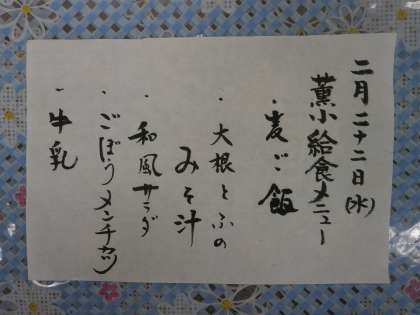 二月二十二日(水)
薫小給食メニュー
・麦ご飯
・大根とふの
みそ汁
・和風サラダ
・ごぼうメンチカツ
・牛乳